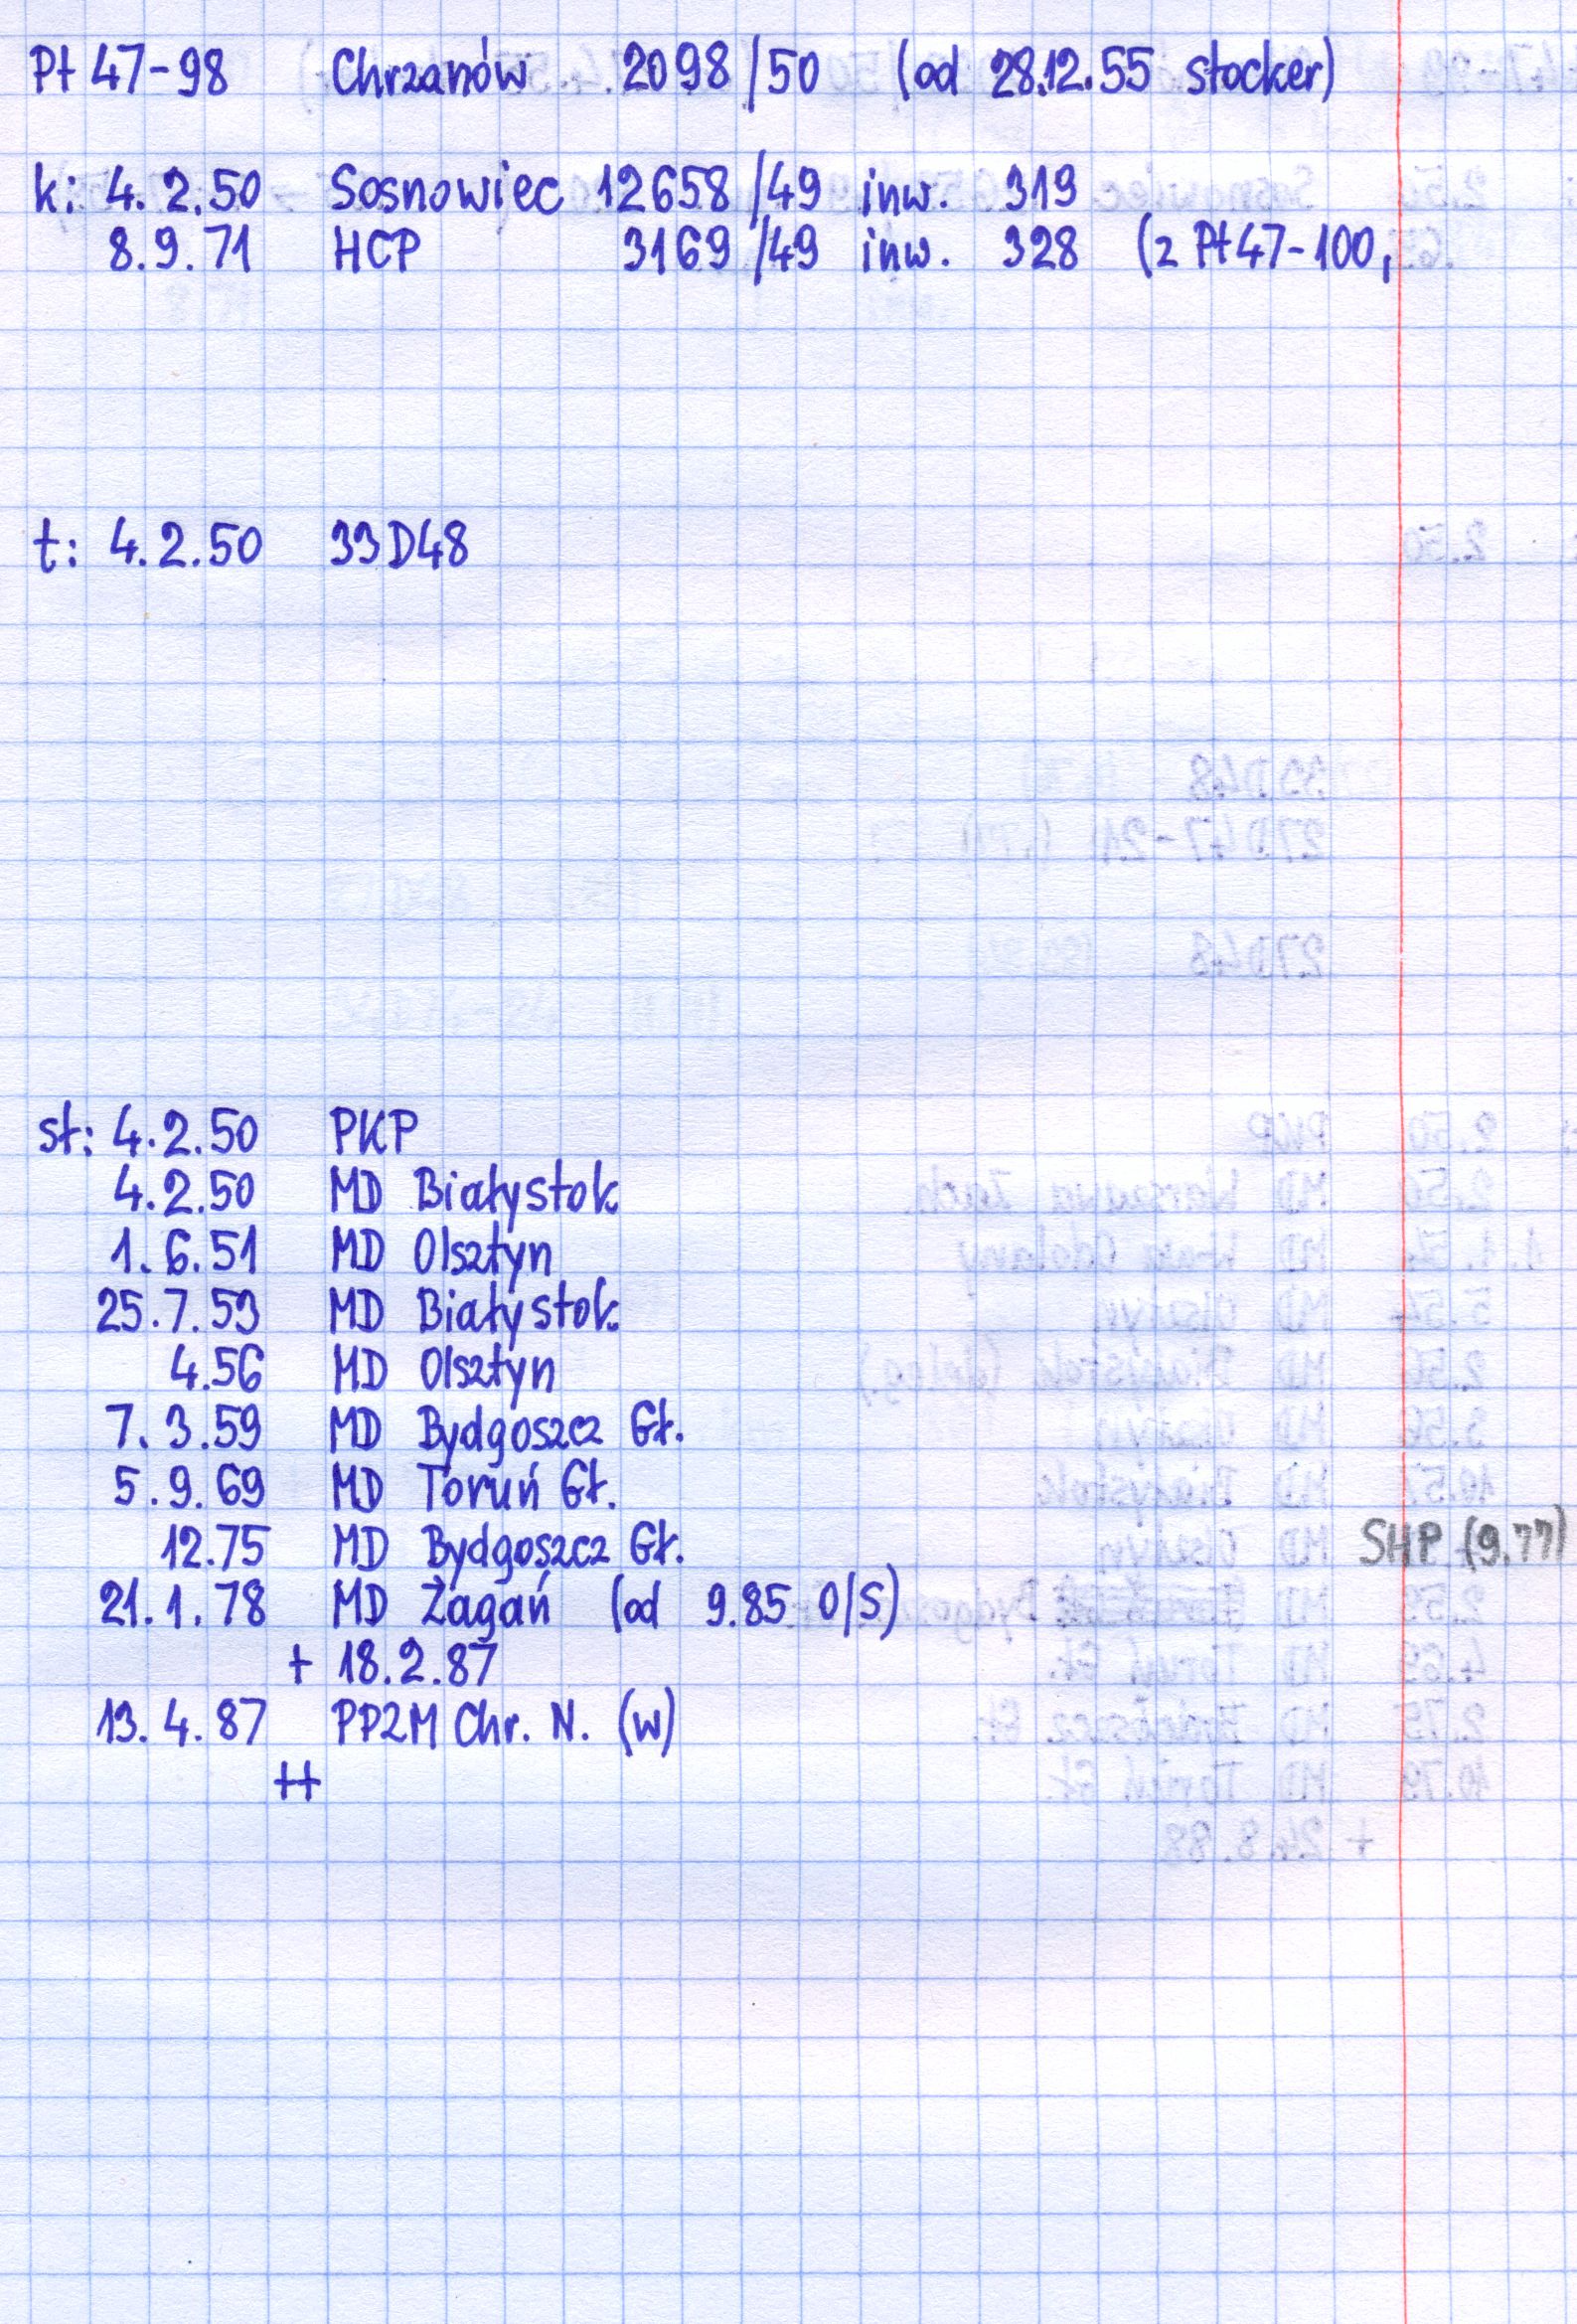 Pt 47-98 Chrzanów 2098/50 (od 28.12.55 stocker)
k: 4.2.50 Sosnowiec 12658/49 inw. 319
8.9.71 HCP 3169/49 inw. 328 (z Pt47-100,
t: 4.2.50 33D48
st: 4.2.50 PKP
4.2.50 MD Białystok
1.6.51 MD Olsztyn
25.7.53 MD Białystok
4.56 MD Olsztyn
7.3.59 MD Bydgoszcz Gł.
5.9.69 MD Toruń Gł.
12.75 MD Bydgoszcz Gł. SHP (9.77)
21.1.78 MD Żagań (od 9.85 O/S)
+ 18.2.87
13.4.87 PPZM Chr. N. (w)
++